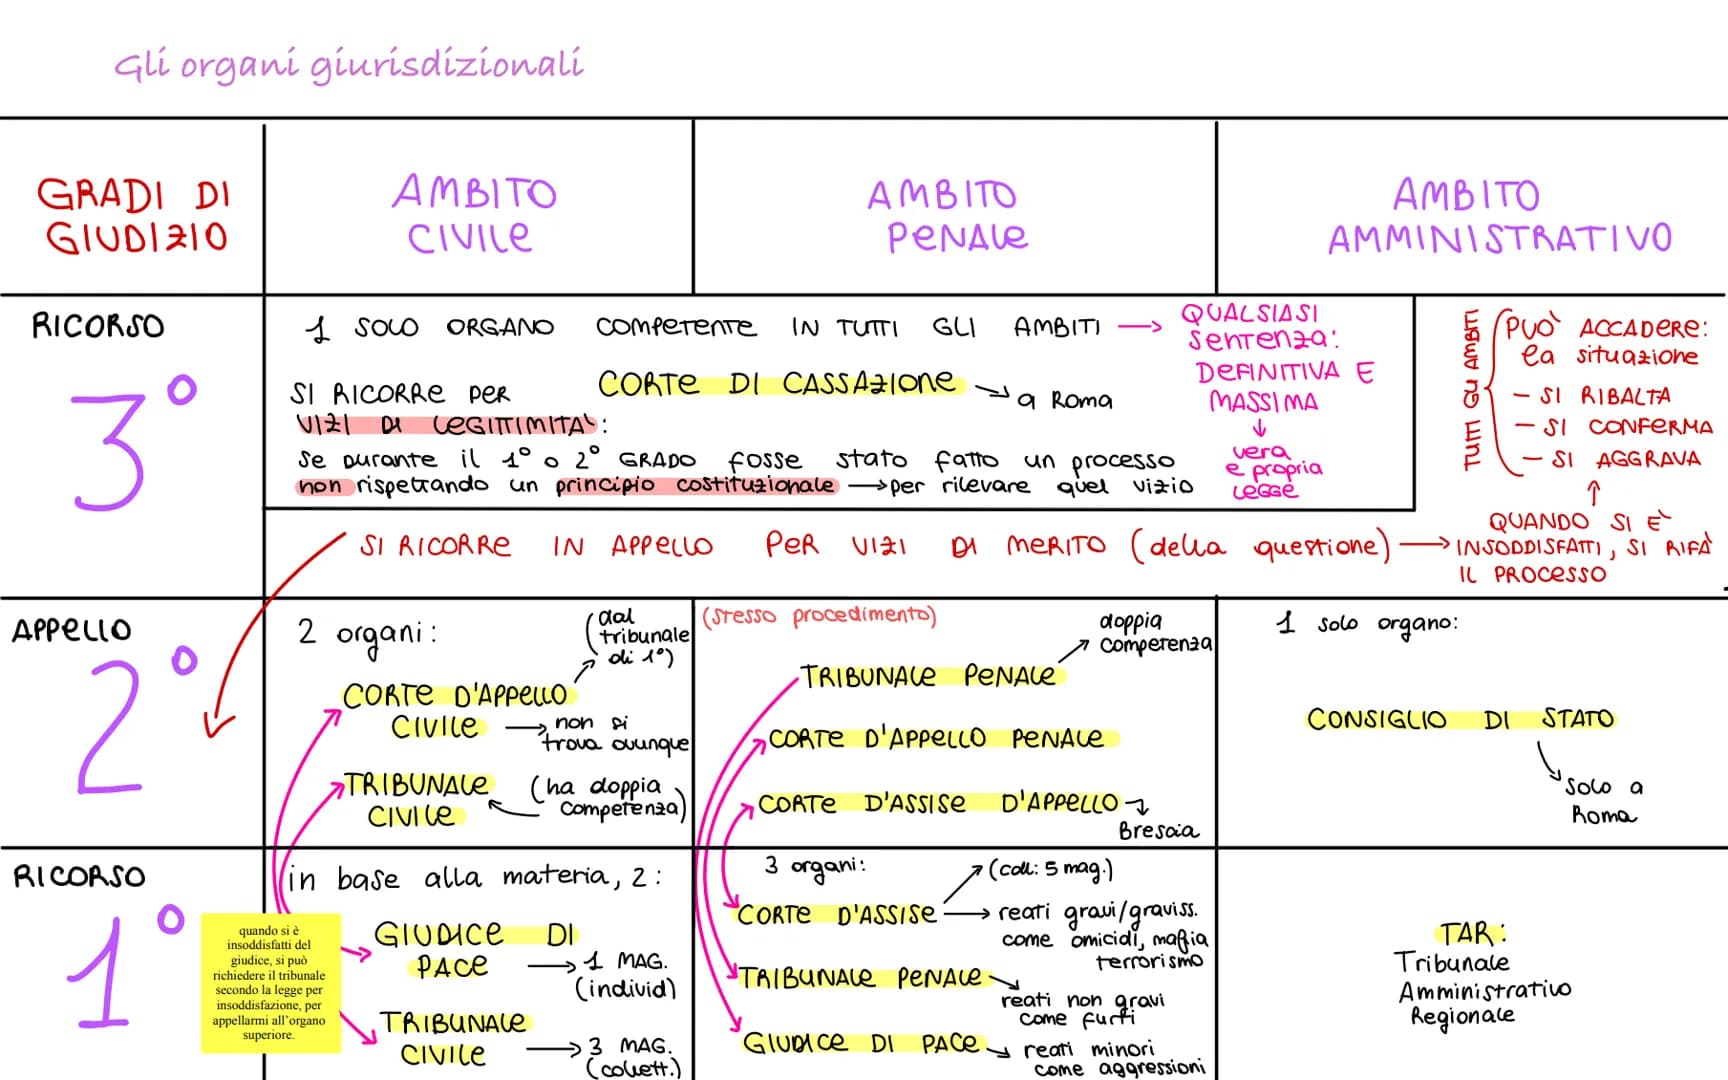 Gli organi giurisdizionali
GRADI DI
GIUDIZIO
AMBITO
CIVILE
AMBITO
PENALE
AMBITO
AMMINISTRATIVO
RICORSO
3°
1 SOLO ORGANO COMPETENTE IN TUTTI GLI AMBITI →
QUALSIASI
SENTENZA:
DEFINITIVA E
MASSIMA
↓
vera
e propria
LEGGE
SI RICORRE PER
VIZI DI LEGITTIMITA':
CORTE DI CASSAZIONE → a Roma
Se DURANTE il 1° o 2° GRADO fosse stato fatto un processo
non rispettando un principio costituzionale → per rilevare quel vizio
TUTTI GLI AMBITI
PUO' ACCADERE:
la situazione
- SI RIBALTA
- SI CONFERMA
- SI AGGRAVA
↑
QUANDO SI E'
INSODDISFATTI, SI RIFA'
IL PROCESSO
SI RICORRE IN APPELLO PER VIZI DI MERITO (della questione) →
APPELLO
2°
2 organi:
(dal
tribunale
di 1°)
CORTE D'APPELLO
CIVILE → non si
trova ovunque
TRIBUNALE
CIVILE
(ha doppia
competenza)
(stesso procedimento)
doppia
competenza
TRIBUNALE PENALE
CORTE D'APPELLO PENALE
CORTE D'ASSISE D'APPELLO
Brescia
1 solo organo:
CONSIGLIO DI STATO
solo a
Roma
RICORSO
1°
quando si è
insoddisfatti del
giudice, si può
richiedere il tribunale
secondo la legge per
insoddisfazione, per
appellarmi all'organo
superiore.
in base alla materia, 2:
GIUDICE DI
PACE → 1 MAG.
(individ)
TRIBUNALE
CIVILE → 3 MAG.
(collett.)
3 organi:
(coll: 5 mag.)
CORTE D'ASSISE → reati gravi/graviss.
come omicidi, mafia
terrorismo
TRIBUNALE PENALE
reati non gravi
come furti
GIUDICE DI PACE
reati minori
come aggressioni
TAR:
Tribunale
Amministrativo
Regionale